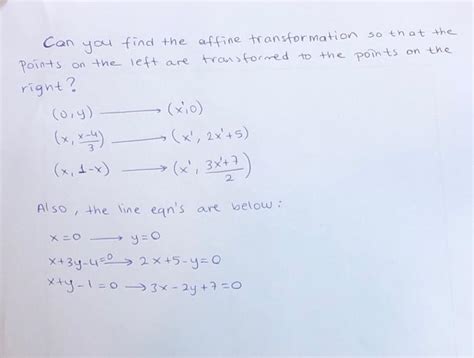 Can you find the affine transformation so that the
points on the left are transformed to the points on the
right?
(0,y) ⟶ (x',0)
(x, (x-4)/3) ⟶ (x', 2x'+5)
(x, 1-x) ⟶ (x', (3x'+7)/2)
Also, the line eqn's are below:
x=0 ⟶ y=0
x+3y-4=0 ⟶ 2x+5-y=0
x+y-1=0 ⟶ 3x-2y+7=0